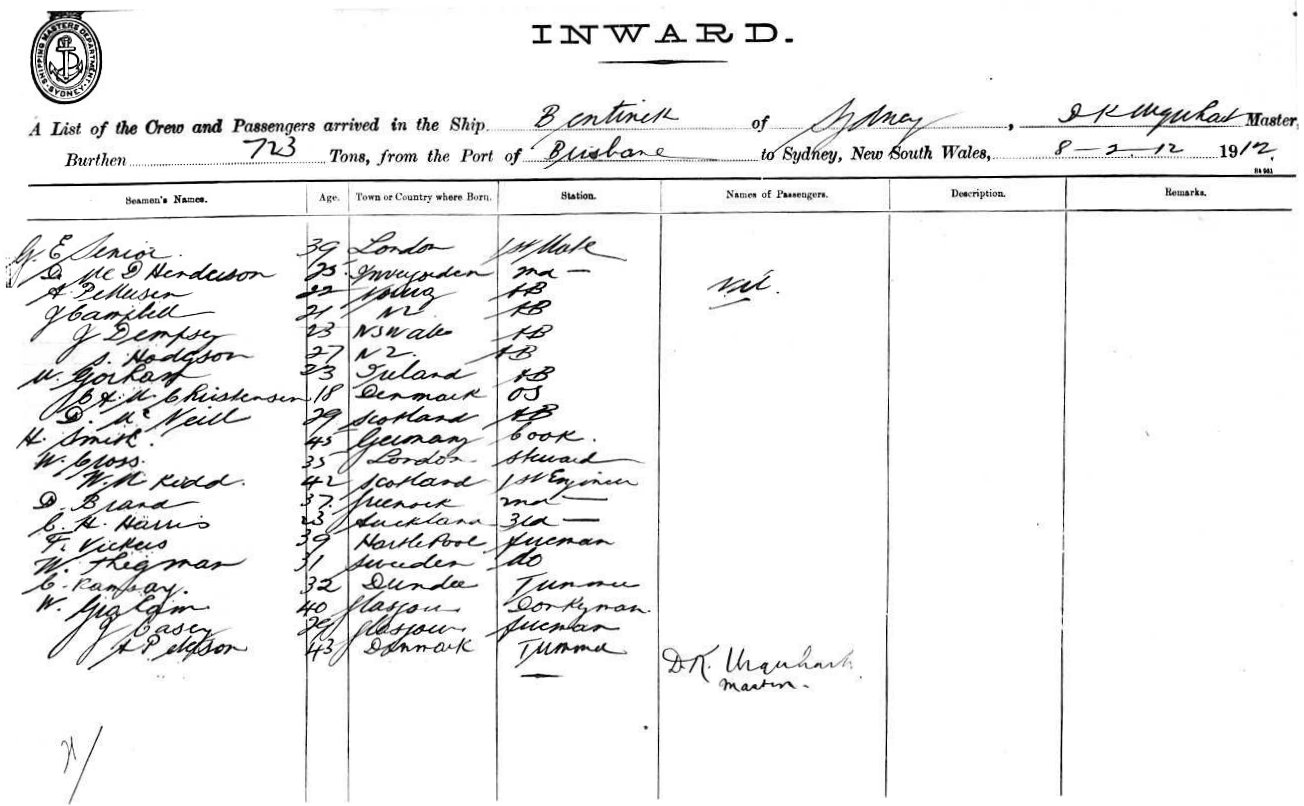 SHIPPING MASTERS DEPARTMENT. SYDNEY.
INWARD.
A List of the Crew and Passengers arrived in the Ship Bentinck of Sydney, D K Urquhart Master,
Burthen 723 Tons, from the Port of Brisbane to Sydney, New South Wales, 8-2-12 1912.
Seamen's Names. Age. Town or Country where Born. Station. Names of Passengers. Description. Remarks.
G. E Senior 39 London 1st Mate
D. Mc D Henderson 25 Invergorden 2nd — Nil.
A Pettersen 22 AB
J Campbell 21 NZ AB
J Dempsey 23 NSWales AB
S. Hodgson 27 NZ. AB
W. Gorham 23 Ireland AB
C A M Christensen 18 Denmark OS
D. Mc Neill 29 Scotland AB
H. Smith. 45 Germany Cook.
W. Cross. 35 London Steward
W. M Kidd. 42 Scotland 1st Engineer
D. Brand 37. Greenock 2nd —
C. H. Harris 23 Auckland 3rd —
F. Vickers 39 Hartlepool Fireman
W. Thegman 31 Sweden do
C. Ramsay. 32 Dundee Trimmer
W. Graham 40 Glasgow Donkyman
J Casey 29 Glasgow Fireman
A Petersson 43 Denmark Trimmer
D. K. Urquhart
Master.